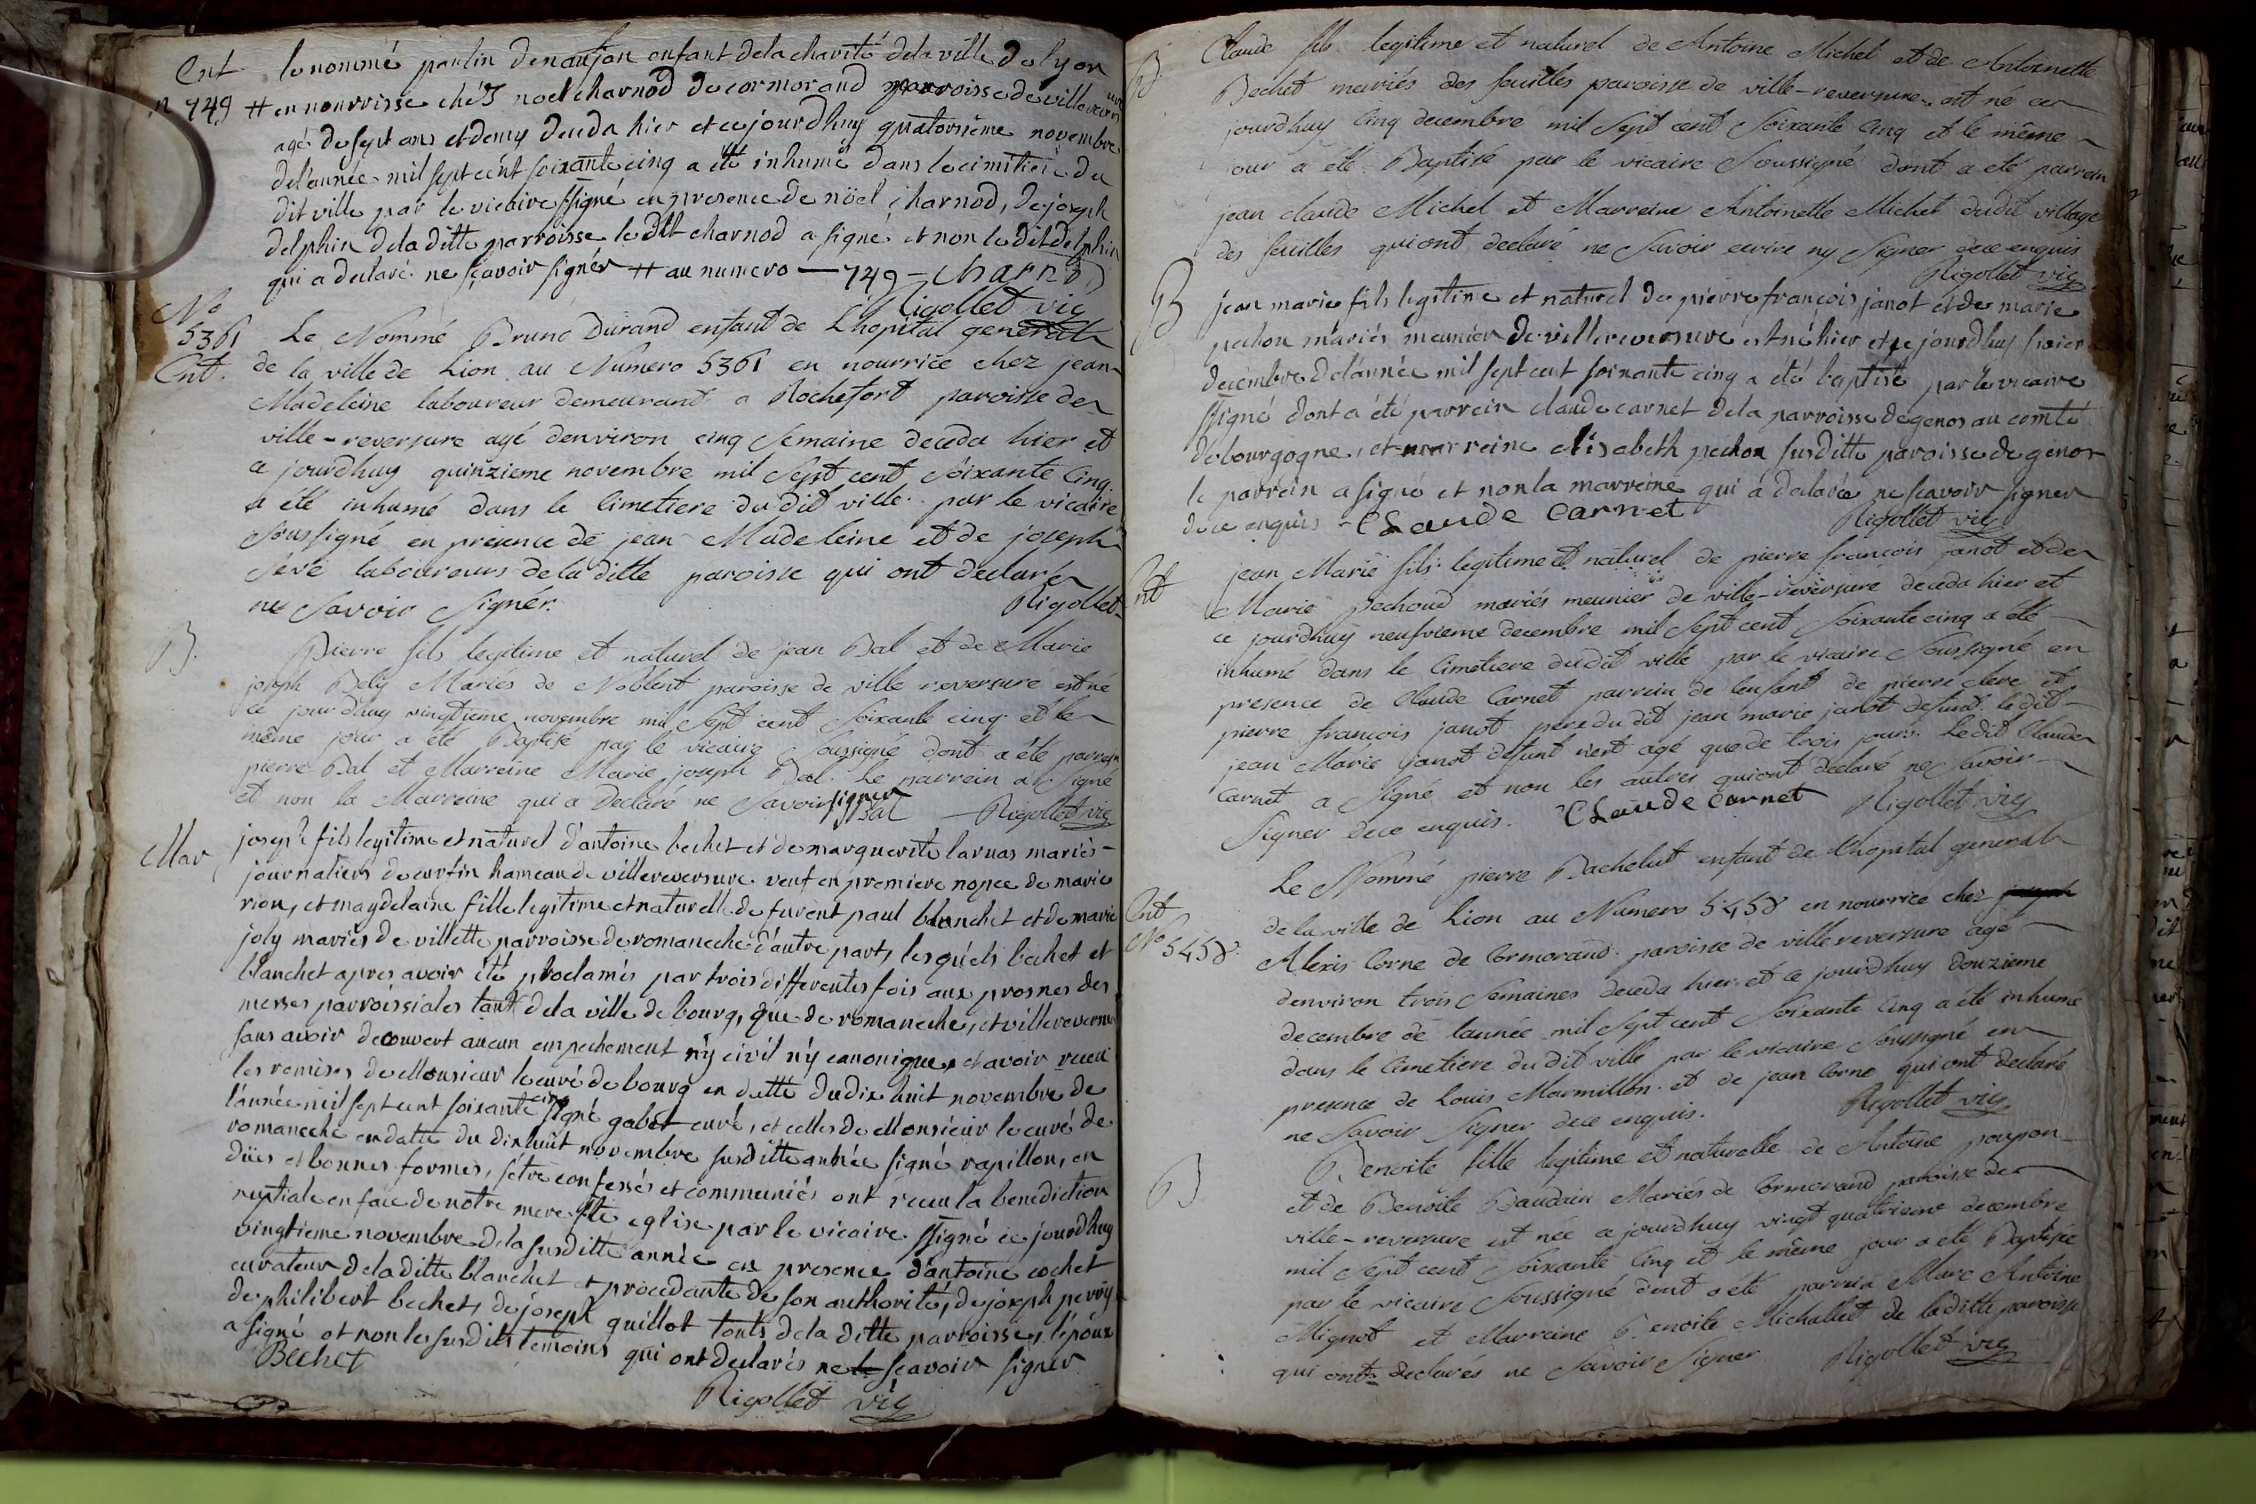 Ent le nommé paulin denanjan enfant de la charité de la ville de lyon
n 749 # en nourrisse chéz noel charnod de cormorand parroisse de villereversure
agé de sept ans et demy deceda hier et ce jourdhuy quatorsiême novembre
de l'année mil sept cent soixante cinq a été inhumé dans le cimitiere du
dit ville par le vicaire ssigné en presence de nöel charnod, de joseph
delphin de la ditte parroisse le dit charnod a signé et non le dit delphin
qui a declaré ne sçavoir signér # au numero — 749 - Charnod
Rigollet vic
No
5361 Le Nommé Bruno Durand enfant de L'hopital general
Ent. de la ville de Lion au Numero 5361 en nourrice chez jean
Madeleine laboureur demeurant a Rochefort paroisse de
ville-reversure agé denviron cinq Semaine deceda hier et
ce jourdhuy quinzieme novembre mil Sept cent Soixante Cinq
a été inhumé dans le Cimetiere du dit ville par le vicaire
Soussigné en présence de jean Madeleine et de joseph
Sévé laboureurs de la ditte paroisse qui ont declaré
ne Savoir Signér. Rigollet
B. Pierre fils legitime et naturel de jean Bal et de Marie
joseph Bely Mariés de Noblent paroisse de ville reversure est né
ce jourd'huy vingtieme novembre mil Sept cent Soixante cinq et le
même jour a été Baptisé par le vicaire Soussigné dont a été parrein
pierre Bal et Marreine Marie joseph Bal. Le parrein a Signé
et non la Marreine qui a Declaré ne Savoir signer
Bal Rigollet vic
Mar joseph fils legitime et naturel d'antoine bechet et de marguerite larnas mariés
journaliers de curtin hameau de villereversure veuf en premiere nopce de marie
rion, et magdelaine fille legitime et naturelle de furent paul blanchet et de marie
joly mariés de villette parroisse de romaneche d'autre part, lesquels bechet et
blanchet apres avoir été proclamés par trois differentes fois aux prosnes des
messes parroissiales tant de la ville de bourg, que de romaneche, et villereversure
sans avoir decouvert aucun empechement n'y civil n'y canonique, et avoir recu
les remises de Monsieur le curé de bourg en datte du dix huit novembre de
l'année mil sept cent soixante cinq signé gabet curé, et celles de Monsieur le curé de
romaneche en datte du dixhuit novembre susditte année signé rapillon, en
dües et bonnes formes, s'étre confessés et communiés ont récu la benediction
nuptiale en face de notre mere ste eglise par le vicaire ssigné ce jourdhuy
vingtieme novembre de la susditte année en presence d'antoine cochet
curateur de la ditte blanchet et procedante de son authorité, de joseph perrÿ
de philibert bechet, de joseph quillot touts de la ditte parroisse, l'époux
a signé et non les susdits temoins qui ont declarés ne sçavoir signer
Bechet
Rigollet vic
B. Claude fils legitime et naturel de Antoine Michel et de Antoinette
Bechet mariés des feuilles paroisse de ville-reversure est né ce
jourdhuy Cinq decembre mil Sept cent Soixante Cinq et le même
jour a été Baptisé par le vicaire Soussigné dont a été parrein
jean claude Michel et Marreine Antoinette Michel dudit village
des feuilles qui ont declaré ne Savoir ecrire ny Signer dece enquis
Rigollet vic
B jean marie fils legitime et naturel de pierre françois janot et de marie
pechou mariés meunier de villereversure est né hier et ce jourdhuy sixieme
decembre de l'année mil sept cent soixante cinq a été baptisé par le vicaire
ssigné dont a été parrein claude carnet de la parroisse de genos au comté
de bourgogne, et marreine elisabeth pechou susditte paroisse de genos
le parrein a signé et non la marreine qui a declarée ne scavoir signer
dece enquis - Claude Carnet Rigollet vic
Ent jean Marie fils legitime et naturel de pierre françois janot et de
Marie Pechoud mariés meunier de ville-reversure deceda hier et
ce jourdhuy neufvieme decembre mil Sept cent Soixante cinq a été
inhumé dans le Cimetiere du dit ville par le vicaire Soussigné en
presence de Claude Carnet parrein de lenfant de pierre clere et
pierre françois janot pere du dit jean marie janot defunt le dit
jean Marie janot defunt n'est agé que de trois jours Le dit Claude
Carnet a Signé et non les autres qui ont declaré ne Savoir
Signer dece enquis. Claude Carnet Rigollet vic
Le Nommé pierre Bachelut enfant de l'hopital general
Ent de la ville de Lion au Numero 5458 en nourrice chez
No 5458. Alexis Corne de Cormorand paroisse de ville reversure agé
denviron trois Semaines deceda hier et ce jourdhuy Douzieme
decembre de l'année mil Sept cent Soixante Cinq a été inhumé
dans le Cimetiere du dit ville par le vicaire Soussigné en
presence de Louis Marmillon et de jean Corne qui ont declaré
ne Savoir Signer dece enquis. Rigollet vic
B Benoite fille legitime et naturelle de Antoine poupon
et de Benoîte Baudin Mariés de Cormorand paroisse de
ville-reversure est née ce jourdhuy vingt quatrieme decembre
mil Sept cent Soixante Cinq et le même jour a été Baptisée
par le vicaire Soussigné dont a été parrein Marc Antoine
Mignot et Marraine Benoite Michallet de la ditte paroisse
qui ont declarés ne Savoir Signer Rigollet vic